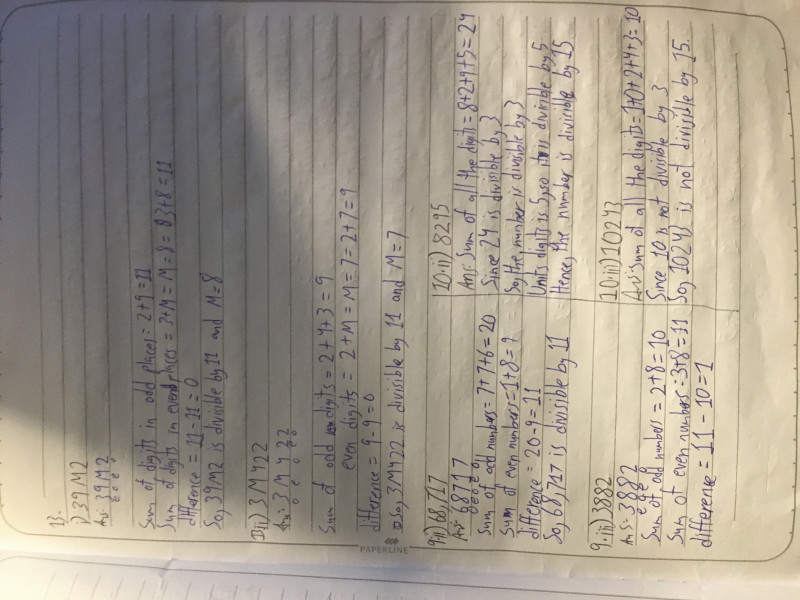 13.
i) 39M2
Ans:- 39M2
e o e o
Sum of digits in odd places = 2+9=11
Sum of digits in even places = 3+M = M=8 = 3+8=11
difference = 11-11=0
So, 39M2 is divisible by 11 and M=8
13ii) 3M422
Ans:- 3M422
o e o e o
Sum of odd digits = 2+4+3=9
even digits = 2+M = M=7 = 2+7=9
difference = 9-9=0
So, 3M422 is divisible by 11 and M=7
PAPERLINE
9ii) 68,717
Ans:- 68717
o e o e o
Sum of odd numbers = 7+7+6=20
Sum of even numbers = 1+8=9
difference = 20-9=11
So, 68,717 is divisible by 11
9.iii) 3882
Ans:- 3882
e o e o
Sum of odd numbers = 2+8=10
Sum of even numbers = 3+8=11
difference = 11-10=1
10.ii) 8295
Ans:- Sum of all the digits = 8+2+9+5=24
Since 24 is divisible by 3
So, the number is divisible by 3
Units digit is 5, so it is divisible by 5
Hence, the number is divisible by 15
10.iii) 10243
Ans:- Sum of all the digits = 1+0+2+4+3=10
Since 10 is not divisible by 3
So, 10243 is not divisible by 15.